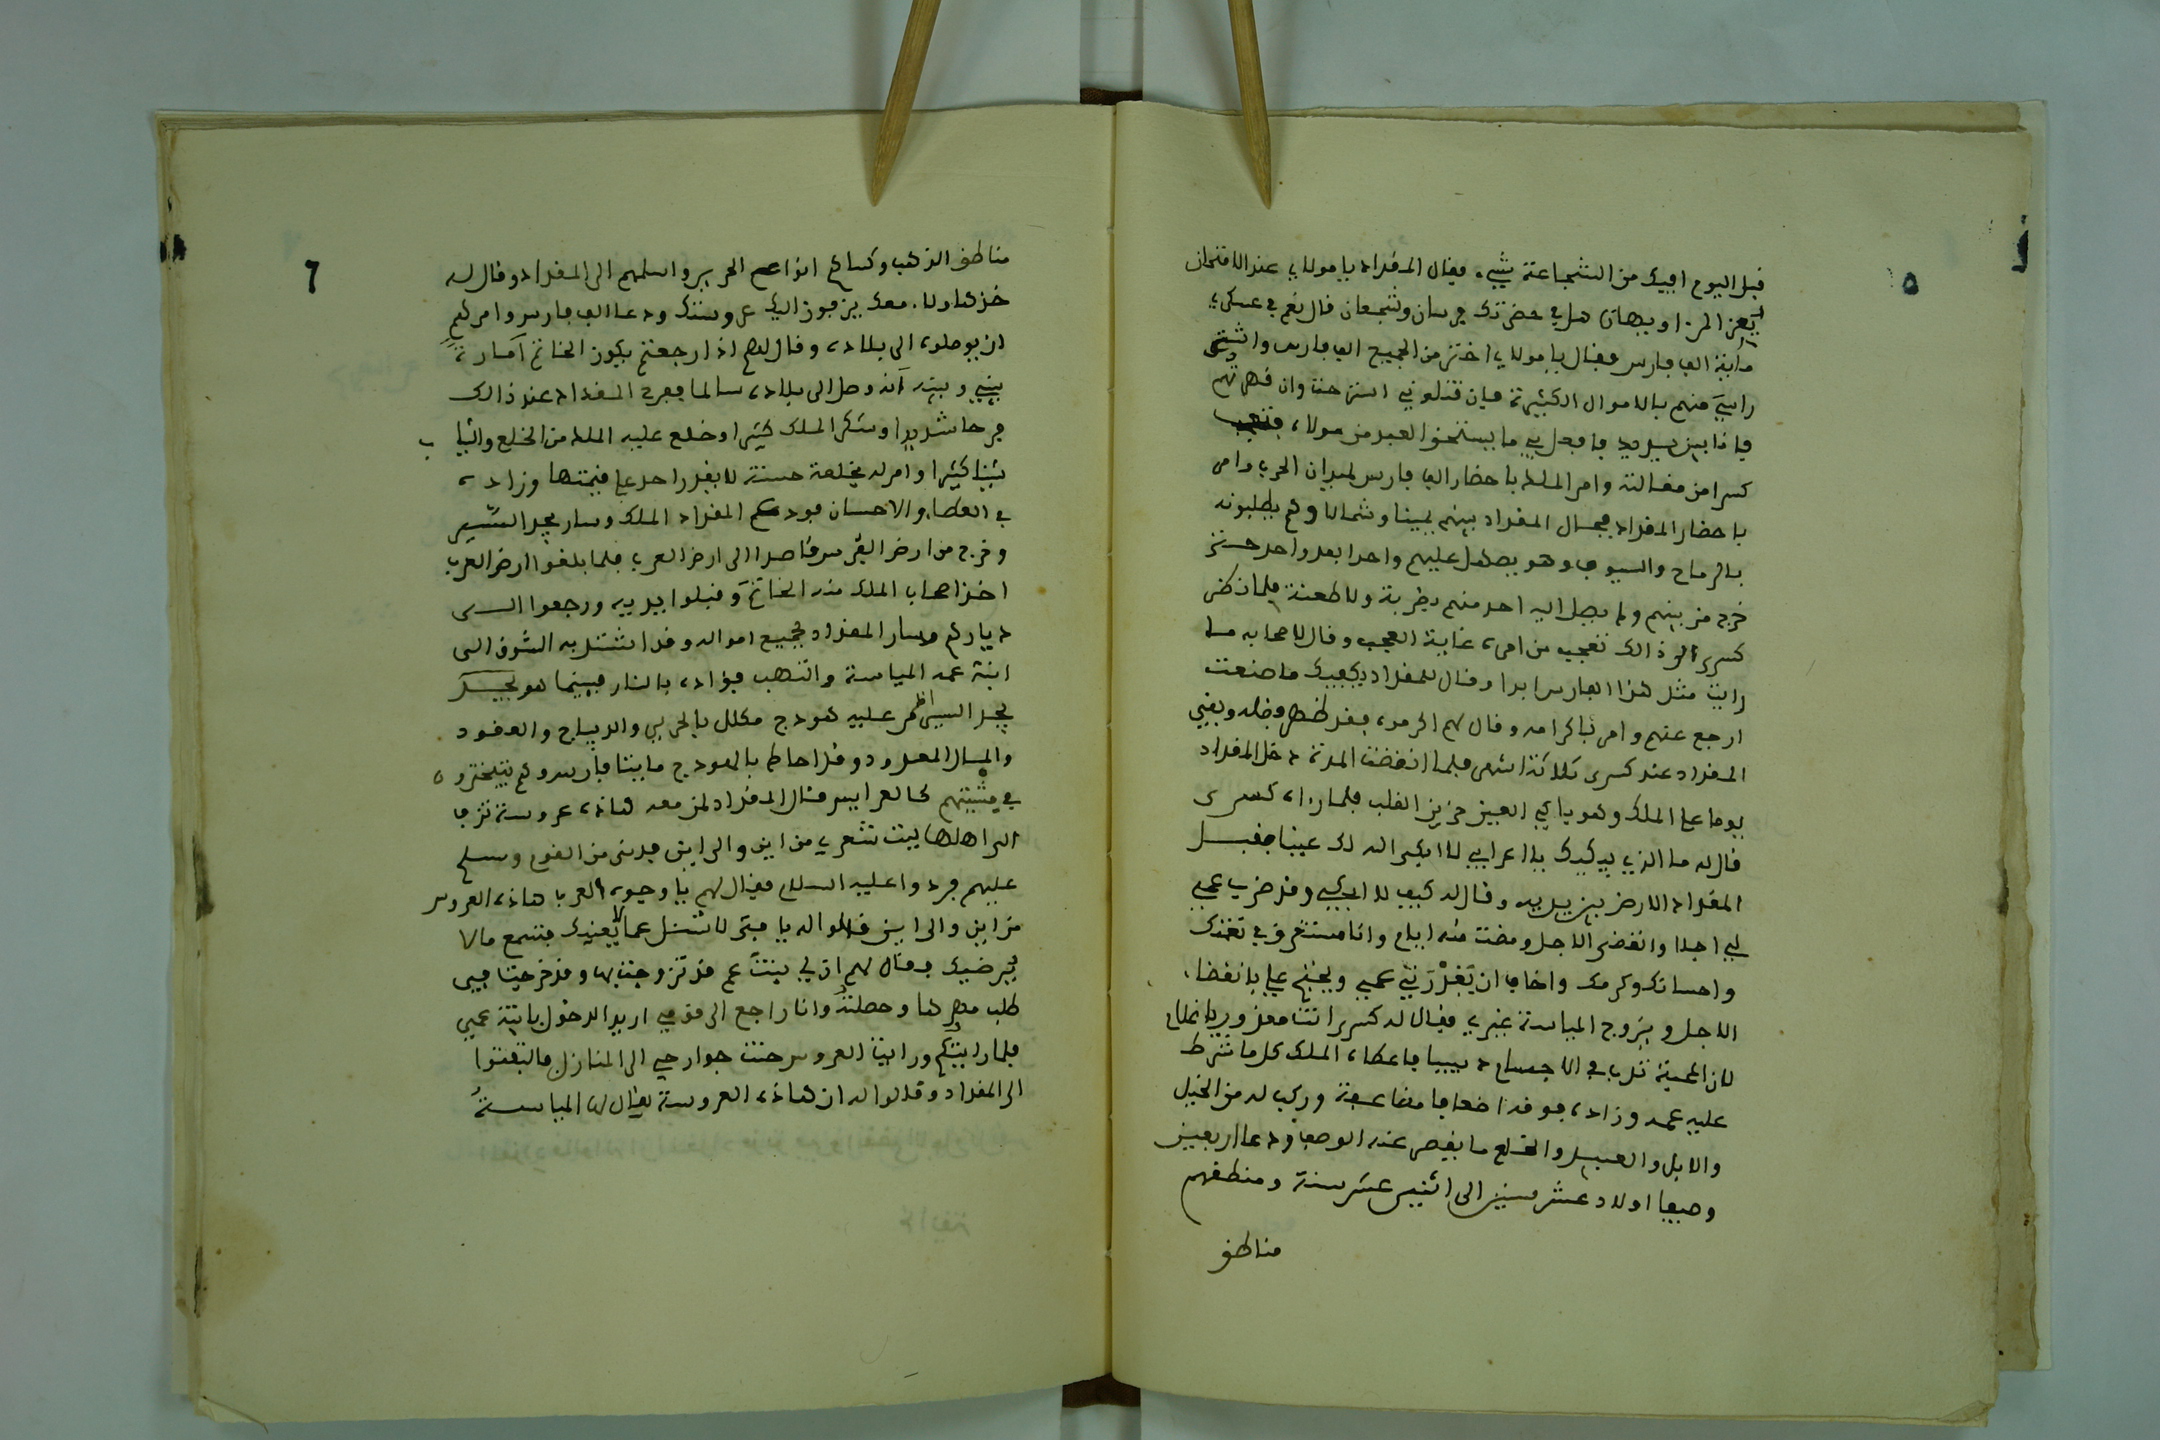 ٥
قبل اليوم افيك من الشجاعة شيء فقال المقداد يا مولاي عند الامتحان
يعز المرء او يهان هل في حضرتك فرسان وشجعان قال نعم في عسكري
ماية الف فارس فقال يا مولاي اختر من الجميع الف فارس واشتري
راسي منهم بالاموال الكثيرة فان قتلوني استرحت وان قهرتهم
فانا بين يديك فافعل بي ما يستحق العبد من مولاه فتعجب
كسرا من مقالته وامر الملك باحضار الف فارس لميدان الحرب وامر
باحضار المقداد فجال المقداد بينهم يمينا وشمالا وهم يطلبونه
بالرماح والسيوف وهو يصول عليهم واحدا بعد واحد حتى
خرج من بينهم ولم يصل اليه احد منهم بضربة ولا طعنة فلما نظر
كسرى الى ذالك تعجب من امره غاية العجب وقال لاصحابه ما
رايت مثل هذا الفارس ابدا وقال للمقداد يكفيك ما صنعت
ارجع عنهم وامر باكرامه وقال لهم اكرموه فقد ظهر فضله وبقي
المقداد عند كسرى ثلاثة اشهر فلما انقضت المدة دخل المقداد
يوما على الملك وهو باكي العين حزين القلب فلما راه كسرى
قال له ما الذي يبكيك يا اعرابي لا ابكى الله لك عينا فقبل
المقداد الارض بين يديه وقال له كيف لا ابكي وقد ضرب عمي
لي اجلا وانقضى الاجل ومضت منه ايام وانا مستغرق في نعمتك
واحسانك وكرمك واخاف ان يغدرني عمي ويحتج علي بانقضاء
الاجل ويزوج المياسة بغيري فقال له كسرى انت معذور يا غلام
لان المحبة تدب في الاجسام دبيبا فاعطاه الملك كل ما شرط
عليه عمه وزاده فوقه اضعافا مضاعفة وركب له من الخيل
والابل والعبيد والخلع ما يقصر عنه الوصف ودعا اربعين
وصيفا اولاد عشر سنين الى اثنى عشر سنة ومنطقهم
مناطق
٦
مناطق الذهب وكساهم انواع الحرير واسلمهم الى المقداد وقال له
خذ هاولاء معك يزفون اليك عروستك ودعا الف فارس وامرهم
ان يوصلوه الى بلاده وقال لهم اذا رجعتم يكون الخاتم امارة
بيني وبينه انه وصل الى بلاده سالما ففرح المقداد عند ذالك
فرحا شديدا وشكر الملك كثيرا وخلع عليه الملك من الخلع والثياب
شيئا كثيرا وامر له بخلعة حسنة لا يقدر احد على قيمتها وزاده
في العطاء والاحسان فودع المقداد الملك وسار يجد السير
وخرج من ارض الفرس قاصدا الى ارض العرب فلما بلغوا ارض العرب
اخذ اصحاب الملك منه الخاتم وقبلوا يديه ورجعوا الى
ديارهم وسار المقداد بجميع امواله وقد اشتد به الشوق الى
ابنة عمه المياسة والتهب فؤاده بالنار فبينما هو
يجد السير اذ ظهر عليه هودج مكلل بالحرير والديباج والعقود
والمال المعدود وقد احاط بالهودج مايتا فارس وهم يتبخترون
في مشيتهم كالعرايس فقال المقداد لمن معه هاذه عروسة تزف
الى اهلها ليت شعري من اين والى اين فدنى من القوم وسلم
عليهم فردوا عليه السلام فقال لهم يا وجوه العرب هاذه العروس
من اين والى اين قالوا له يا فتى لا تسئل عما لا يعنيك فتسمع ما لا
يرضيك فقال لهم ان لي بنت عم قد تزوجت بها وقد خرجت في
طلب مهرها وحصلته وانا راجع الى قومي اريد الدخول بابنة عمي
فلما رايتكم ورايت العروس حنت جوارحي الى المنازل فالتفتوا
الى المقداد وقالوا له ان هاذه العروسة يقال لها المياسة